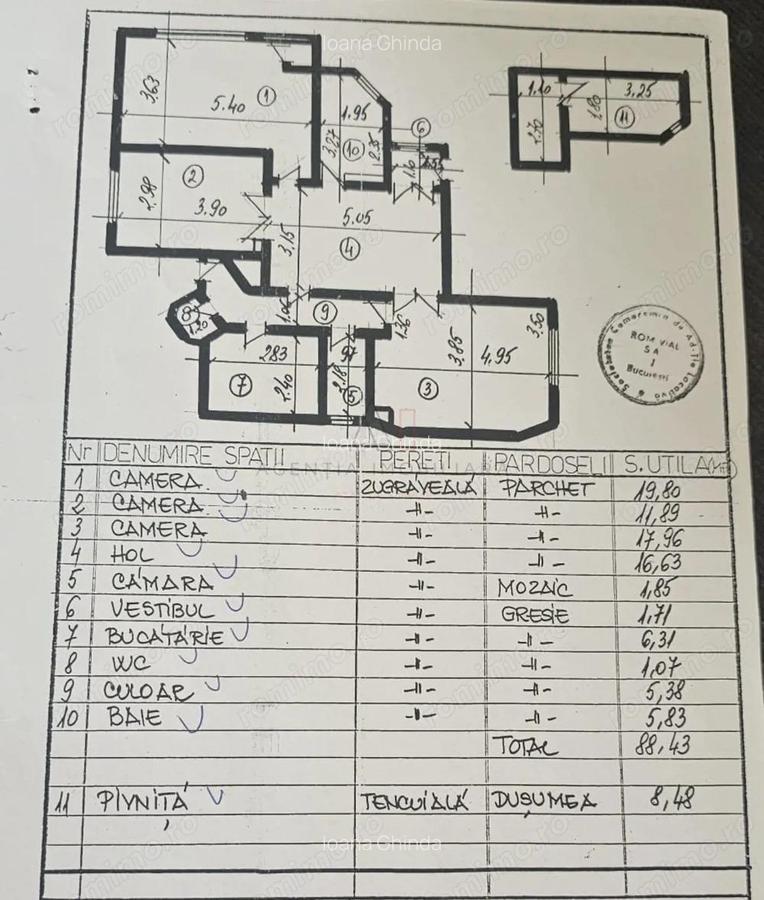 Ioana Ghinda
1
3.63
5.40
1.95
3.27
10
2.35
6
1.10
1.55
1.10
3.25
1.80
11
1.70
2
2.98
3.90
5.05
3.15
4
8
1.20
9
1.36
283
97
7
2.40
2.18
5
3.85
4.95
3.50
3
Societatea Comercial de Ad-tie Locativa
ROM VIAL
SA
1
Bucuresti
Ioana Ghinda
AGENTIA IMOBILIARA
Nr DENUMIRE SPATII PERETI PARDOSELI S.UTILA(MP)
1 CAMERA ZUGRAVEALA PARCHET 19,80
2 CAMERA -//- -//- 11,89
3 CAMERA -//- -//- 17,96
4 HOL -//- -//- 16,63
5 CAMARA -//- MOZAIC 1,85
6 VESTIBUL -//- GRESIE 1,71
7 BUCATĂRIE -//- -//- 6,31
8 WC -//- -//- 1,07
9 CULOAR -//- -//- 5,38
10 BAIE -//- -//- 5,83
TOTAL 88,43
11 PIVNIȚĂ TENCUIALĂ DUȘUMEA 8,48
Ioana Ghinda
romimo.ro